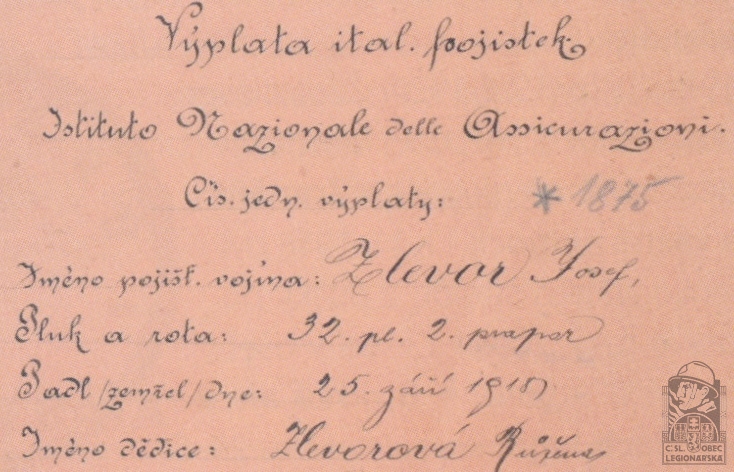 Výplata ital. pojistek.
Istituto Nazionale delle Assicurazioni.
Čís. jedn. výplaty: * 1875
Jméno pojišt. vojína: Zlevor Josef,
Pluk a rota: 32. pl. 2. prapor
Padl /zemřel/ dne: 25. září 1918
Jméno dědice: Zlevorová Růžena
ČSL. OBEC
LEGIONÁŘSKÁ